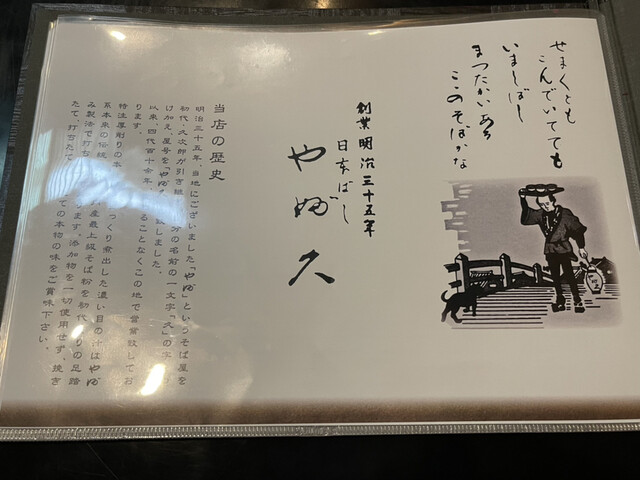 せまくとも
こんでいてても
いましばし
まつたかいある
このそばかな
創業明治三十五年
日本ばし
やぶ久
当店の歴史
明治三十五年、当地にございました「やぶ」というそば屋を
初代・久次郎が引き継 分の名前の一文字「久」の字
け加え、屋号を「やぶ 致しました。
以来、四代百十余年、 ることなくこの地で営業致してお
ります。
特注厚削りの本 っくり煮出した濃い目の汁はやぶ
系本来の伝統 産最上級そば粉を初代 りの足踏
み製法で打ち ます。添加物を一切使用せず、挽き
たて、打ちたて ての本物の味をご賞味下さい。